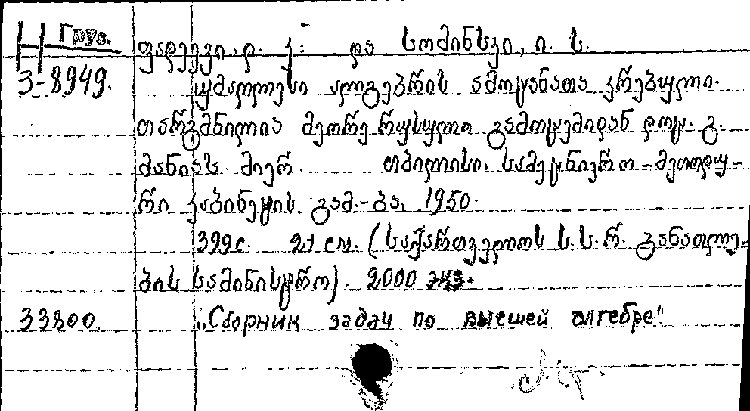 Груз.
ფადეევი, დ. კ. და სომინსკი, ი. ს.
3-8949. უმაღლესი ალგებრის ამოცანათა კრებული.
თარგმნილია მეორე რუსული გამოცემიდან დოც. გ.
მანიას მიერ. თბილისი. სამეცნიერო-მეთოდუ-
რი კაბინეტის გამ-ბა, 1950.
399с. 21 см. (საქართველოს ს.ს.რ. განათლე-
ბის სამინისტრო). 2000 экз.
33800. „Сборник задач по высшей алгебре"